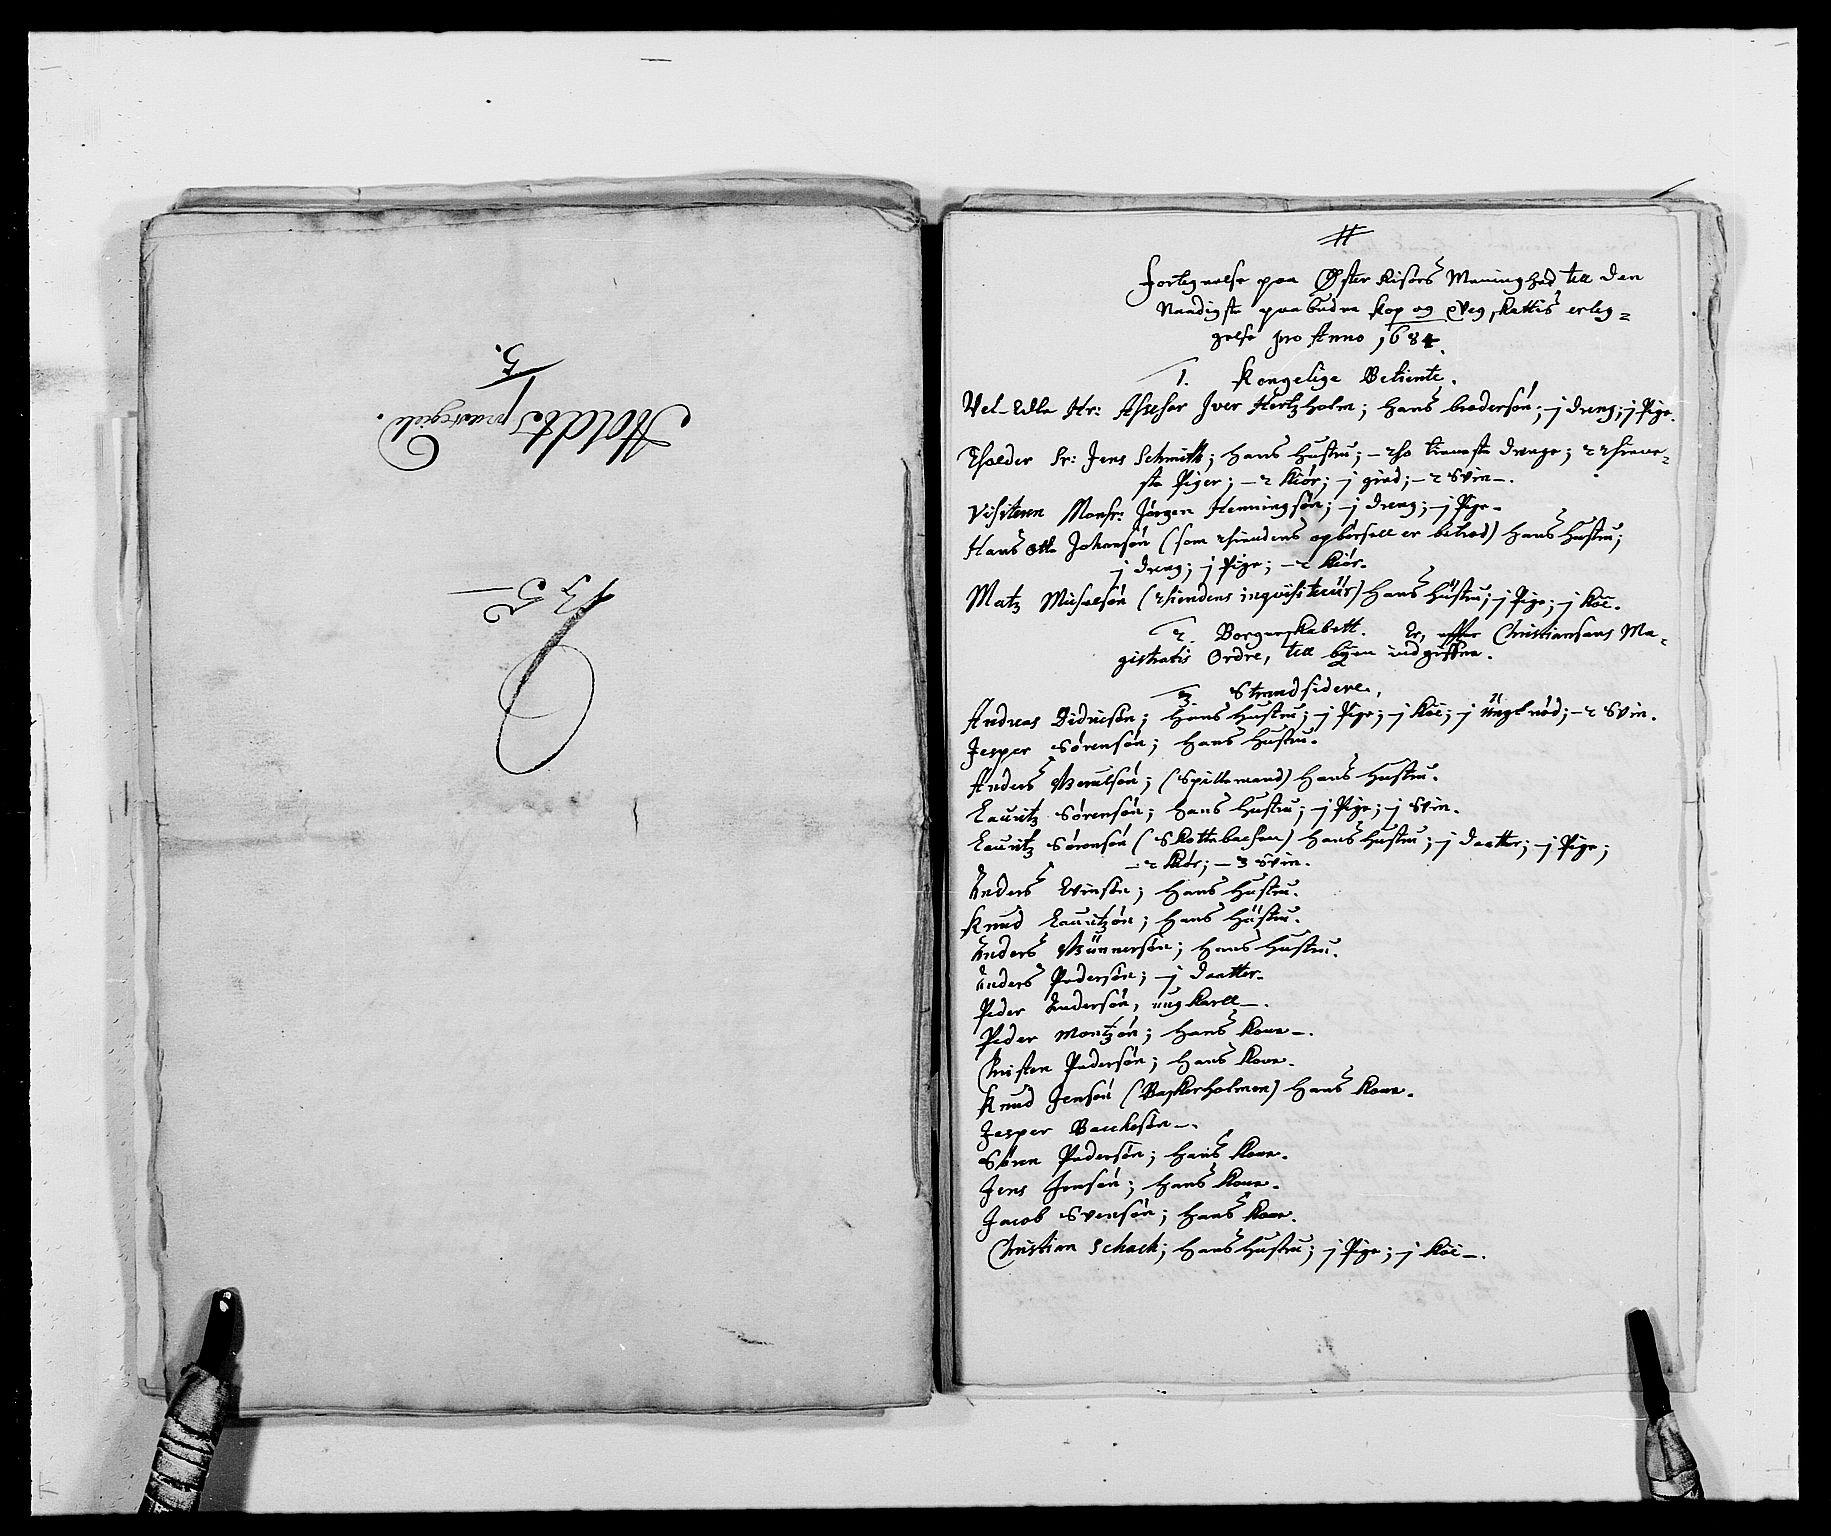 Holdtes
præstegield.
5.
135
#
Fortegnelse paa Øster Risørs Meenighed till den
Naadigste paabudne Kop og Qveg skattis erleg=
gelse pro Anno 1684.
1. Kongelige Betiente.
Vel-Edle Hr: Assessor Iver Hertzholm; hans brodersøn; j dreng; j Pige.
Tholder Sr: Jens Schmith; hans hustru; - tho tieneste drenge; 2 thiene=
ste Piger; - 2 kiør; - j gied; - 2 Sviin.
Visiteur Monsr: Jørgen Henningsøn; - j dreng; - j Pige.
Hans Otto Johansøn (som thiendens opbørsell er betroed) hans hustru;
j dreng; j Pige; - 2 kiør.
Matz Michelsøn (thiendens inqvisiteur) hans hustru; j Pige; j koe.
2. Borgerskabett. Er, effter Christiansans Ma=
gistratis Ordre, till byen indgiffven.
3. Strandsidere.
Andreas Didricsøn; hans hustru; - j Pige; - j koe; - j ungt nød; - 2 Svin.
Jesper Sørensøn; hans hustru.
Anders (Spillemand) hans hustru.
Lauritz Sørensøn; hans hustru; - j Pige; - j Svin.
Lauritz Sørensøn hans hustru; - j daatter; - j Pige;
- 2 kiør; - 3 Svin.
Anders Evensøn; hans hustru.
Knud Lauritzøn; hans hustru.
Anders Gunnersøn; hans hustru.
Anders Pedersøn; - j daatter.
Peder Andersøn, ung karll.
Peder Montzøn; hans kone.
Christen Pedersøn; hans kone.
Knud Jensøn (Baskerholmen) hans kone.
Jesper Bauchesøn.
Søren Pedersøn; hans kone.
Jens Jensøn; hans kone.
Jacob Svensøn; hans kone.
Christian Schack; hans hustru; j Pige; - j koe.